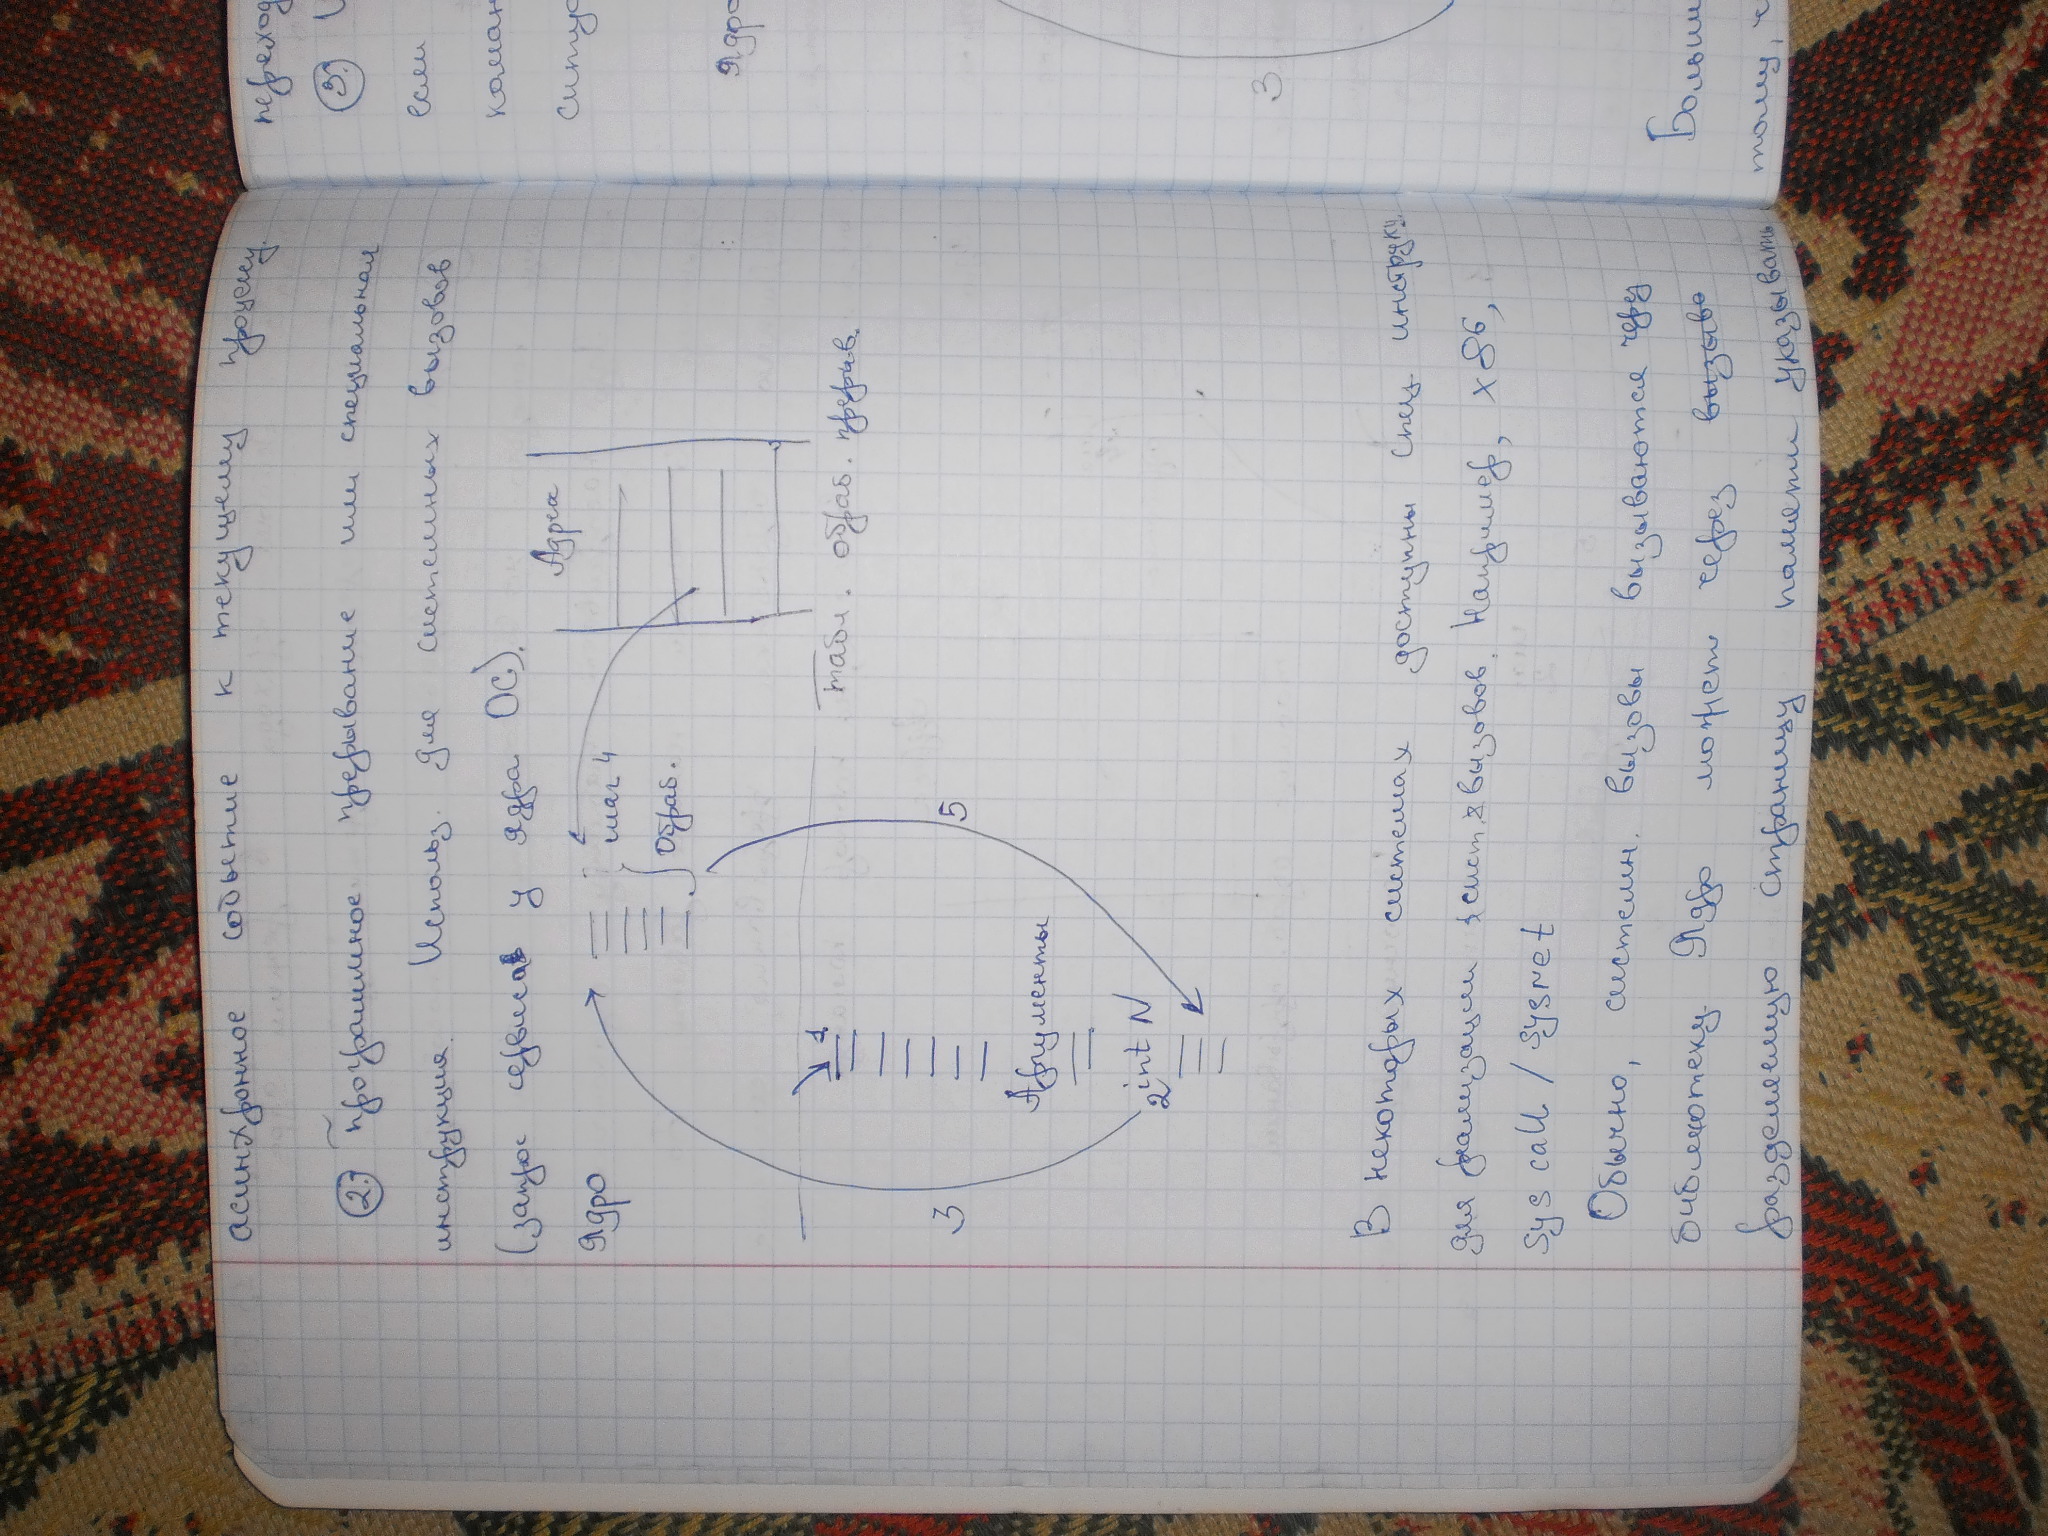 асинхронное событие к текущему процессу.
2. программное прерывание или специальная
инструкция. Использ. для системных вызовов
(запрос сервиса у ядра ОС).
Ядро
шаг 4
обраб.
Адреса
Табл. обраб. прерыв.
1
Аргументы
2 int N
3
5
В некоторых системах доступны спец. инструкц.
для реализации сист. вызовов. Например, x86,
sys call / sysret
Обычно, системн. вызовы вызываются через
библиотеку. Ядро может через вызыво
разделяемую страницу памяти указывать
переход
3.
если
коман
ситуа
Ядро
3
Больши
тому, ч